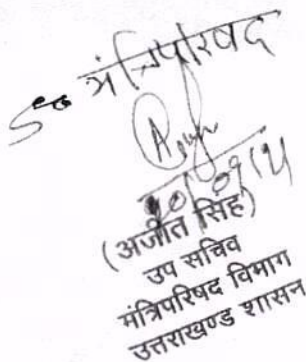 मंत्रिपरिषद
(अजीत सिंह)
उप सचिव
मंत्रिपरिषद विभाग
उत्तराखण्ड शासन